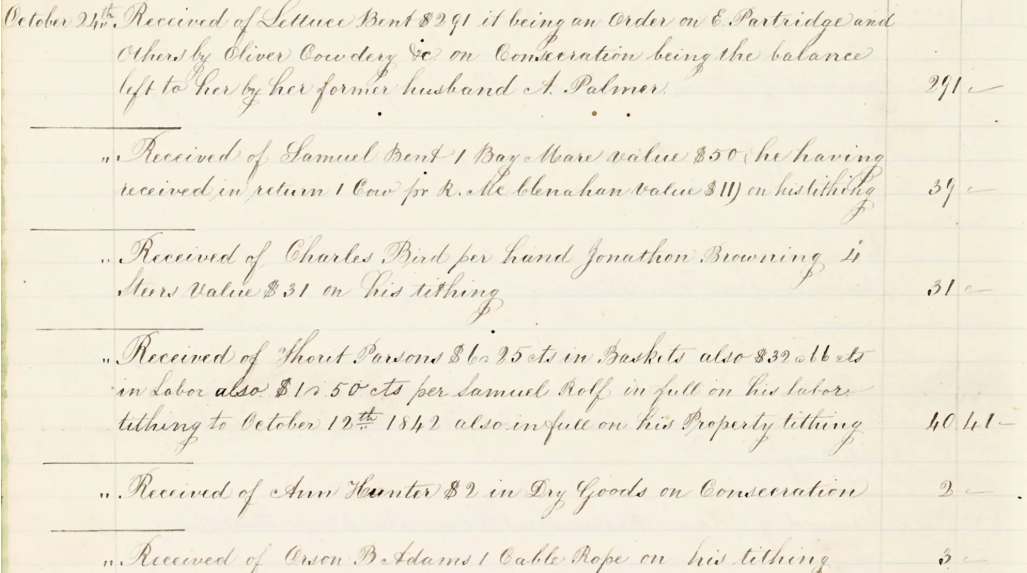 October 24th Received of Lettuce Bent $291 it being an Order on E. Partridge and
Others by Oliver Cowdery &c on Consecration being the balance
left to her by her former husband A. Palmer. 291
" Received of Samuel Bent 1 Bay Mare value $50 (he having
received in return 1 Cow pr R. Mc Clenahan value $11) on his tithing 39
" Received of Charles Bird per hand Jonathon Browning 4
Steers value $31 on his tithing 31
" Received of Thorit Parsons $6 25 cts in Baskets also $32 66 cts
in Labor also $1 50 cts per Samuel Rolf in full on his labor
tithing to October 12th 1842 also in full on his Property tithing 40 41
" Received of Ann Hunter $2 in Dry Goods on Consecration 2
" Received of Orson B Adams 1 Cable Rope on his tithing 3